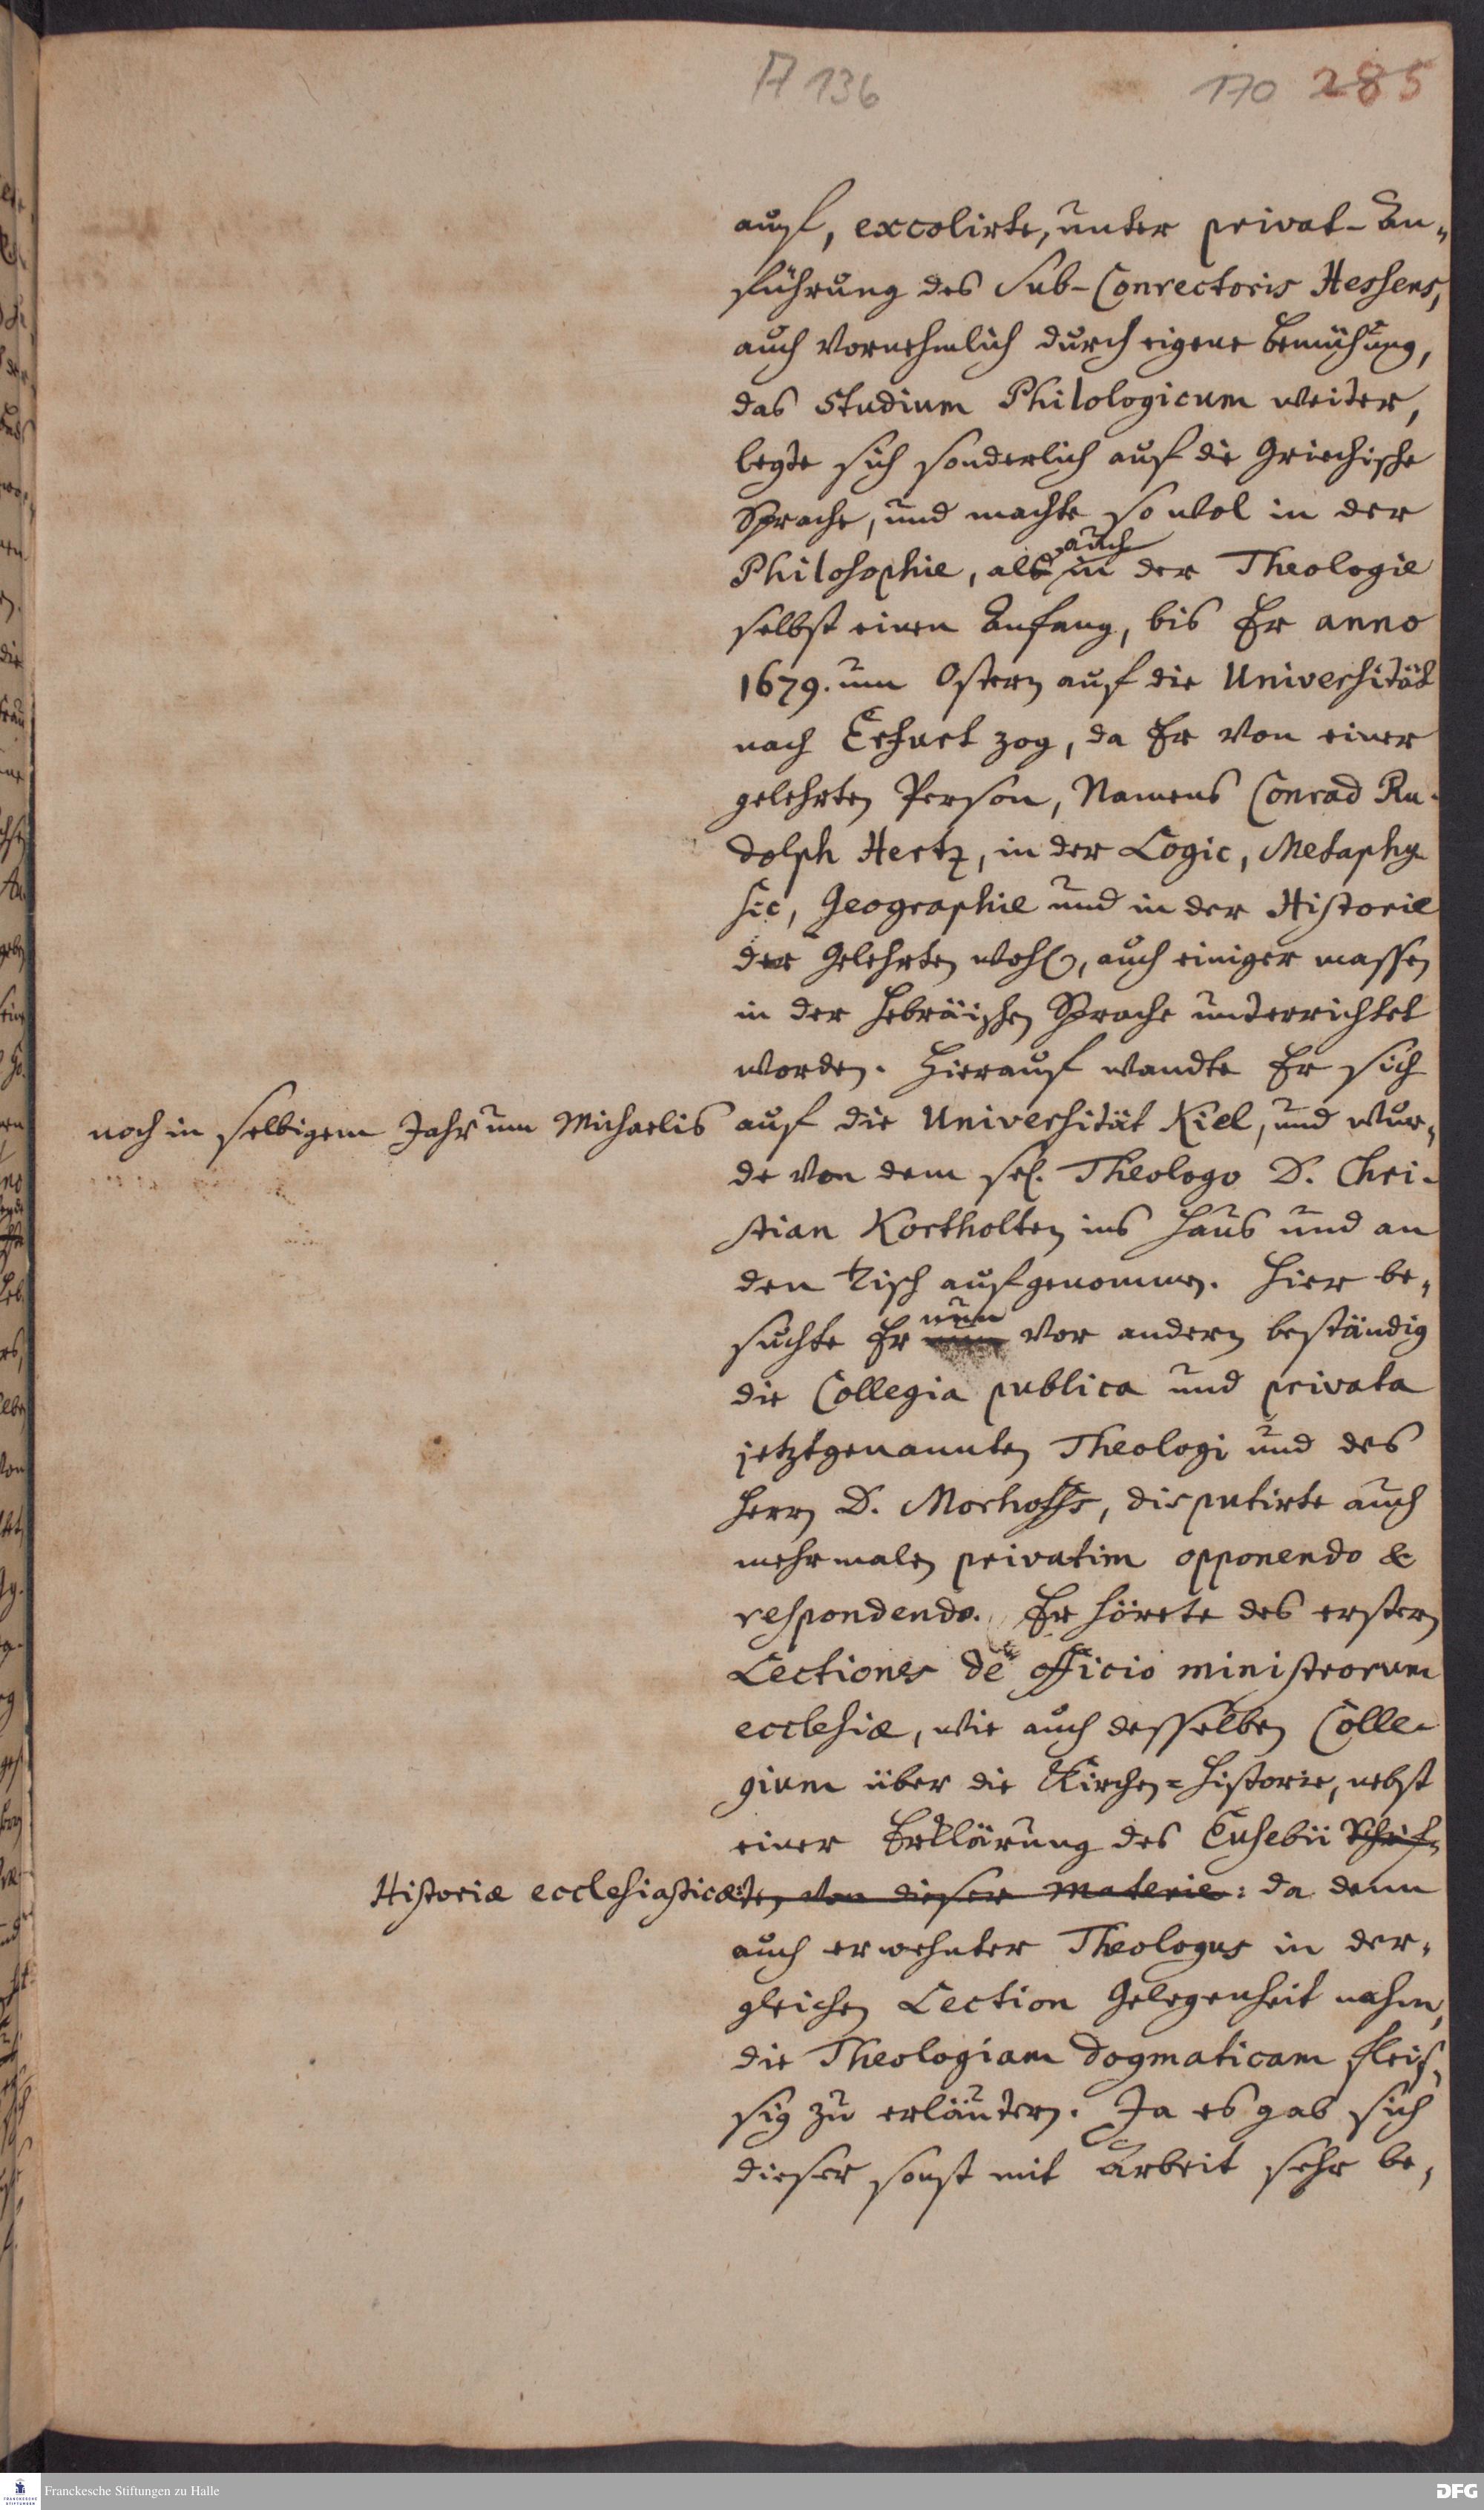 A 136
170 285
auf, excolirte, unter privat-An-
führung des Sub-Conrectoris Hessens,
auch vornehmlich durch eigene Bemühung,
das Studium Philologicum weiter,
legte sich sonderlich auf die Griechische
Sprache, und machte so wol in der
auch
Philosophie, als in der Theologie
selbst einen Anfang, bis Er anno
1679. um Ostern auf die Universität
nach Erfurt zog, da Er von einer
gelehrten Person, Namens Conrad Ru-
dolph Hertz, in der Logic, Metaphy-
sic, Geographie und in der Historie
der Gelehrten wohl, auch einiger massen
in der Hebräischen Sprache unterrichtet
worden. Hierauf wandte Er sich
noch in selbigem Jahr um Michaelis auf die Universität Kiel, und wur-
de von dem sel. Theologo D. Chri-
stian Kortholten ins Haus und an
den Tisch aufgenommen. Hier be-
nun
suchte Er vor andern beständig
die Collegia publica und privata
jetztgenannten Theologi und des
Herrn D. Morhoffs, disputirte auch
mehrmalen privatim opponendo &
respondendo. Er hörete des erstern
Lectiones de officio ministrorum
ecclesiæ, wie auch desselben Colle-
gium über die Kirchen-Historie, nebst
einer Erklärung des Eusebii Schrif-
Historiæ ecclesiasticæ: ten von dieser Materie: da denn
auch erwehnter Theologus in der-
gleichen Lection Gelegenheit nahm,
die Theologiam dogmaticam fleis-
sig zu erläutern. Ja es gab sich
dieser sonst mit Arbeit sehr be-
Franckesche Stiftungen zu Halle
DFG